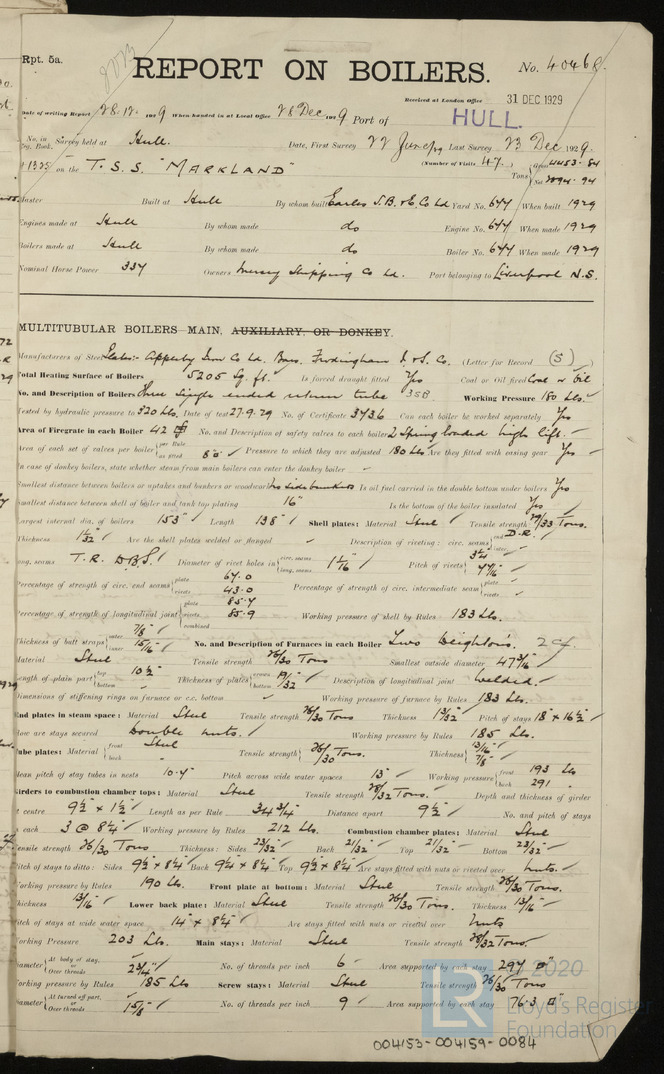 Rpt. 5a.
REPORT ON BOILERS.
No. 40468.
Received at London Office 31 DEC 1929
Date of writing Report 28.12.1929 When handed in at Local Office 28 Dec 1929 Port of HULL.
No. in Reg. Book. Survey held at Hull. Date, First Survey 22 June/29 Last Survey 23 Dec 1929.
on the T.S.S. "MARKLAND" (Number of Visits 47.) Tons Gross 4453.84 Net 94
Master Built at Hull By whom built Earles S.B. & E. Co Ld Yard No. 644 When built 1929
Engines made at Hull By whom made do Engine No. 644 When made 1929
Boilers made at Hull By whom made do Boiler No. 644 When made 1929
Nominal Horse Power 334 Owners Mersey Shipping Co Ld. Port belonging to Liverpool N.S.
MULTITUBULAR BOILERS MAIN, AUXILIARY, OR DONKEY.
Manufacturers of Steel Plates:- Appleby Iron Co Ld. Bars. Frodingham I. & S. Co. (Letter for Record (S) )
Total Heating Surface of Boilers 5205 Sq. ft. Is forced draught fitted Yes Coal or Oil fired Coal or Oil
No. and Description of Boilers Three Single ended return tube 3SB Working Pressure 180 Lbs.
Tested by hydraulic pressure to 320 Lbs. Date of test 27.9.29 No. of Certificate 3736 Can each boiler be worked separately Yes
Area of Firegrate in each Boiler 42 No. and Description of safety valves to each boiler 2 Spring loaded high lift.
Area of each set of valves per boiler per Rule as fitted Pressure to which they are adjusted 180 Lbs Are they fitted with easing gear Yes
In case of donkey boilers, state whether steam from main boilers can enter the donkey boiler
Smallest distance between boilers or uptakes and bunkers or woodwork No side bunkers Is oil fuel carried in the double bottom under boilers Yes
Smallest distance between shell of boiler and tank top plating 16" Is the bottom of the boiler insulated Yes
Largest internal dia. of boilers 153" Length 138" Shell plates: Material Steel Tensile strength 29/33 Tons.
Thickness 1 1/32" Are the shell plates welded or flanged Description of riveting: circ. seams end D.R. inter.
long. seams T.R. D.B.S. Diameter of rivet holes in circ. seams long. seams 1 1/16" Pitch of rivets 3 3/4"
Percentage of strength of circ. end seams plate 67.0 rivets 43.0 Percentage of strength of circ. intermediate seam plate rivets
Percentage of strength of longitudinal joint plate 85.7 rivets 85.9 combined Working pressure of shell by Rules 183 Lbs.
Thickness of butt straps outer 7/8" inner 15/16" No. and Description of Furnaces in each Boiler Two Deighton's. 2 cf
Material Steel Tensile strength 26/30 Tons Smallest outside diameter 47 3/16"
Length of plain part top 10 1/2" bottom Thickness of plates crown bottom 19/32" Description of longitudinal joint Welded.
Dimensions of stiffening rings on furnace or c.c. bottom Working pressure of furnace by Rules 183 Lbs.
End plates in steam space: Material Steel Tensile strength 26/30 Tons Thickness Pitch of stays 18" x 16 1/2"
How are stays secured Double nuts. Working pressure by Rules 185 Lbs.
Tube plates: Material front back Steel Tensile strength 26/30 Tons. Thickness 13/16" 7/8"
Mean pitch of stay tubes in nests 10.4" Pitch across wide water spaces 13" Working pressure front 193 Lbs back 291
Girders to combustion chamber tops: Material Steel Tensile strength 28/32 Tons. Depth and thickness of girder
at centre 9 1/2" x 1 1/2" Length as per Rule 34 3/4" Distance apart 9 1/2" No. and pitch of stays
in each 3 @ 8 1/4" Working pressure by Rules 212 Lbs. Combustion chamber plates: Material Steel
Tensile strength 26/30 Tons Thickness: Sides 23/32" Back 21/32" Top 21/32" Bottom 23/32"
Pitch of stays to ditto: Sides 9 1/2" x 8 1/4" Back 9 1/4" x 8 1/4" Top 9 1/2" x 8 1/4" Are stays fitted with nuts or riveted over nuts.
Working pressure by Rules 190 Lbs. Front plate at bottom: Material Steel Tensile strength 26/30 Tons.
Thickness 13/16" Lower back plate: Material Steel Tensile strength 26/30 Tons. Thickness 13/16"
Pitch of stays at wide water space 14" x 8 1/4" Are stays fitted with nuts or riveted over Nuts
Working Pressure 203 Lbs. Main stays: Material Steel Tensile strength 28/32 Tons.
Diameter At body of stay, or Over threads 2 3/4" No. of threads per inch 6 Area supported by each stay 297 □"
Working pressure by Rules 185 Lbs Screw stays: Material Steel Tensile strength 26/30 Tons
Diameter At turned off part, or Over threads 1 5/8" No. of threads per inch 9 Area supported by each stay 76.3 □"
© 2020
LR
Lloyd's Register
Foundation
004153-004159-0084